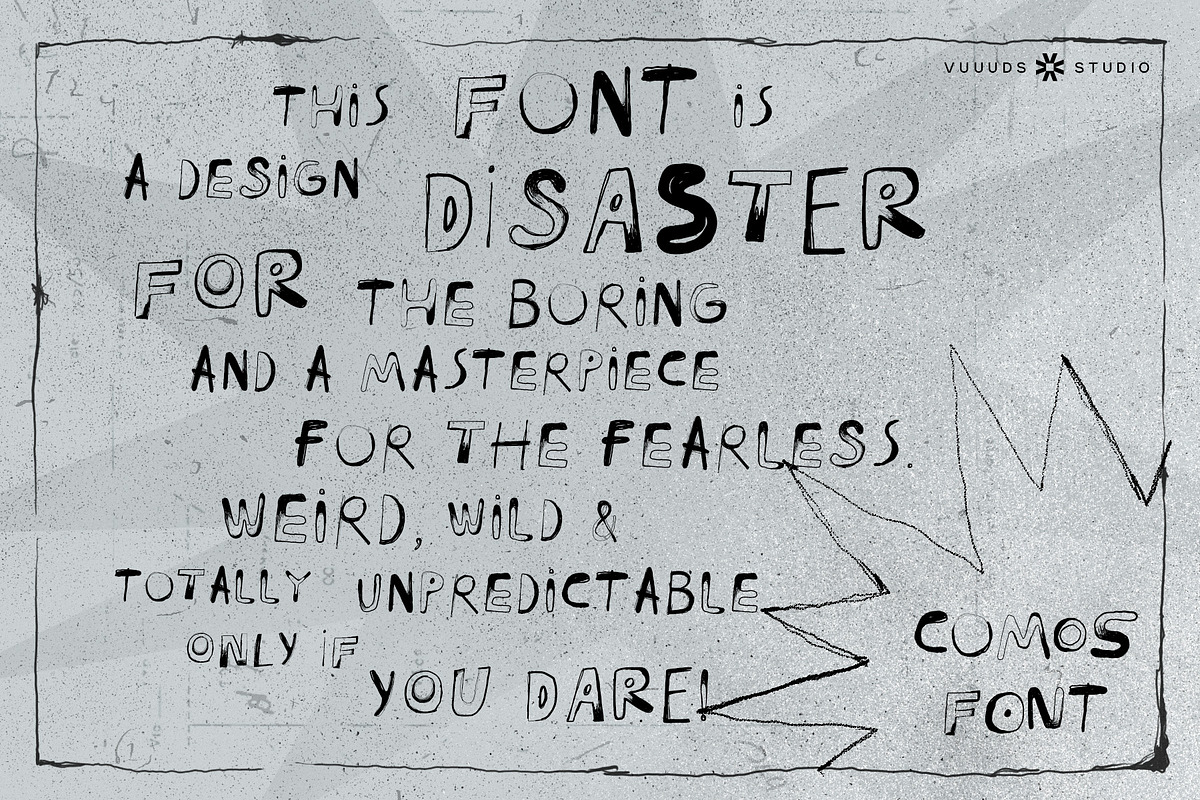 VUUUDS STUDIO
THiS FONT iS
A DESiGN DiSASTER
FOR THE BORiNG
AND A MASTERPiECE
FOR THE FEARLESS.
WEiRD, WiLD &
TOTALLY UNPREDiCTABLE
ONLY iF
YOU DARE!
COMOS
FONT